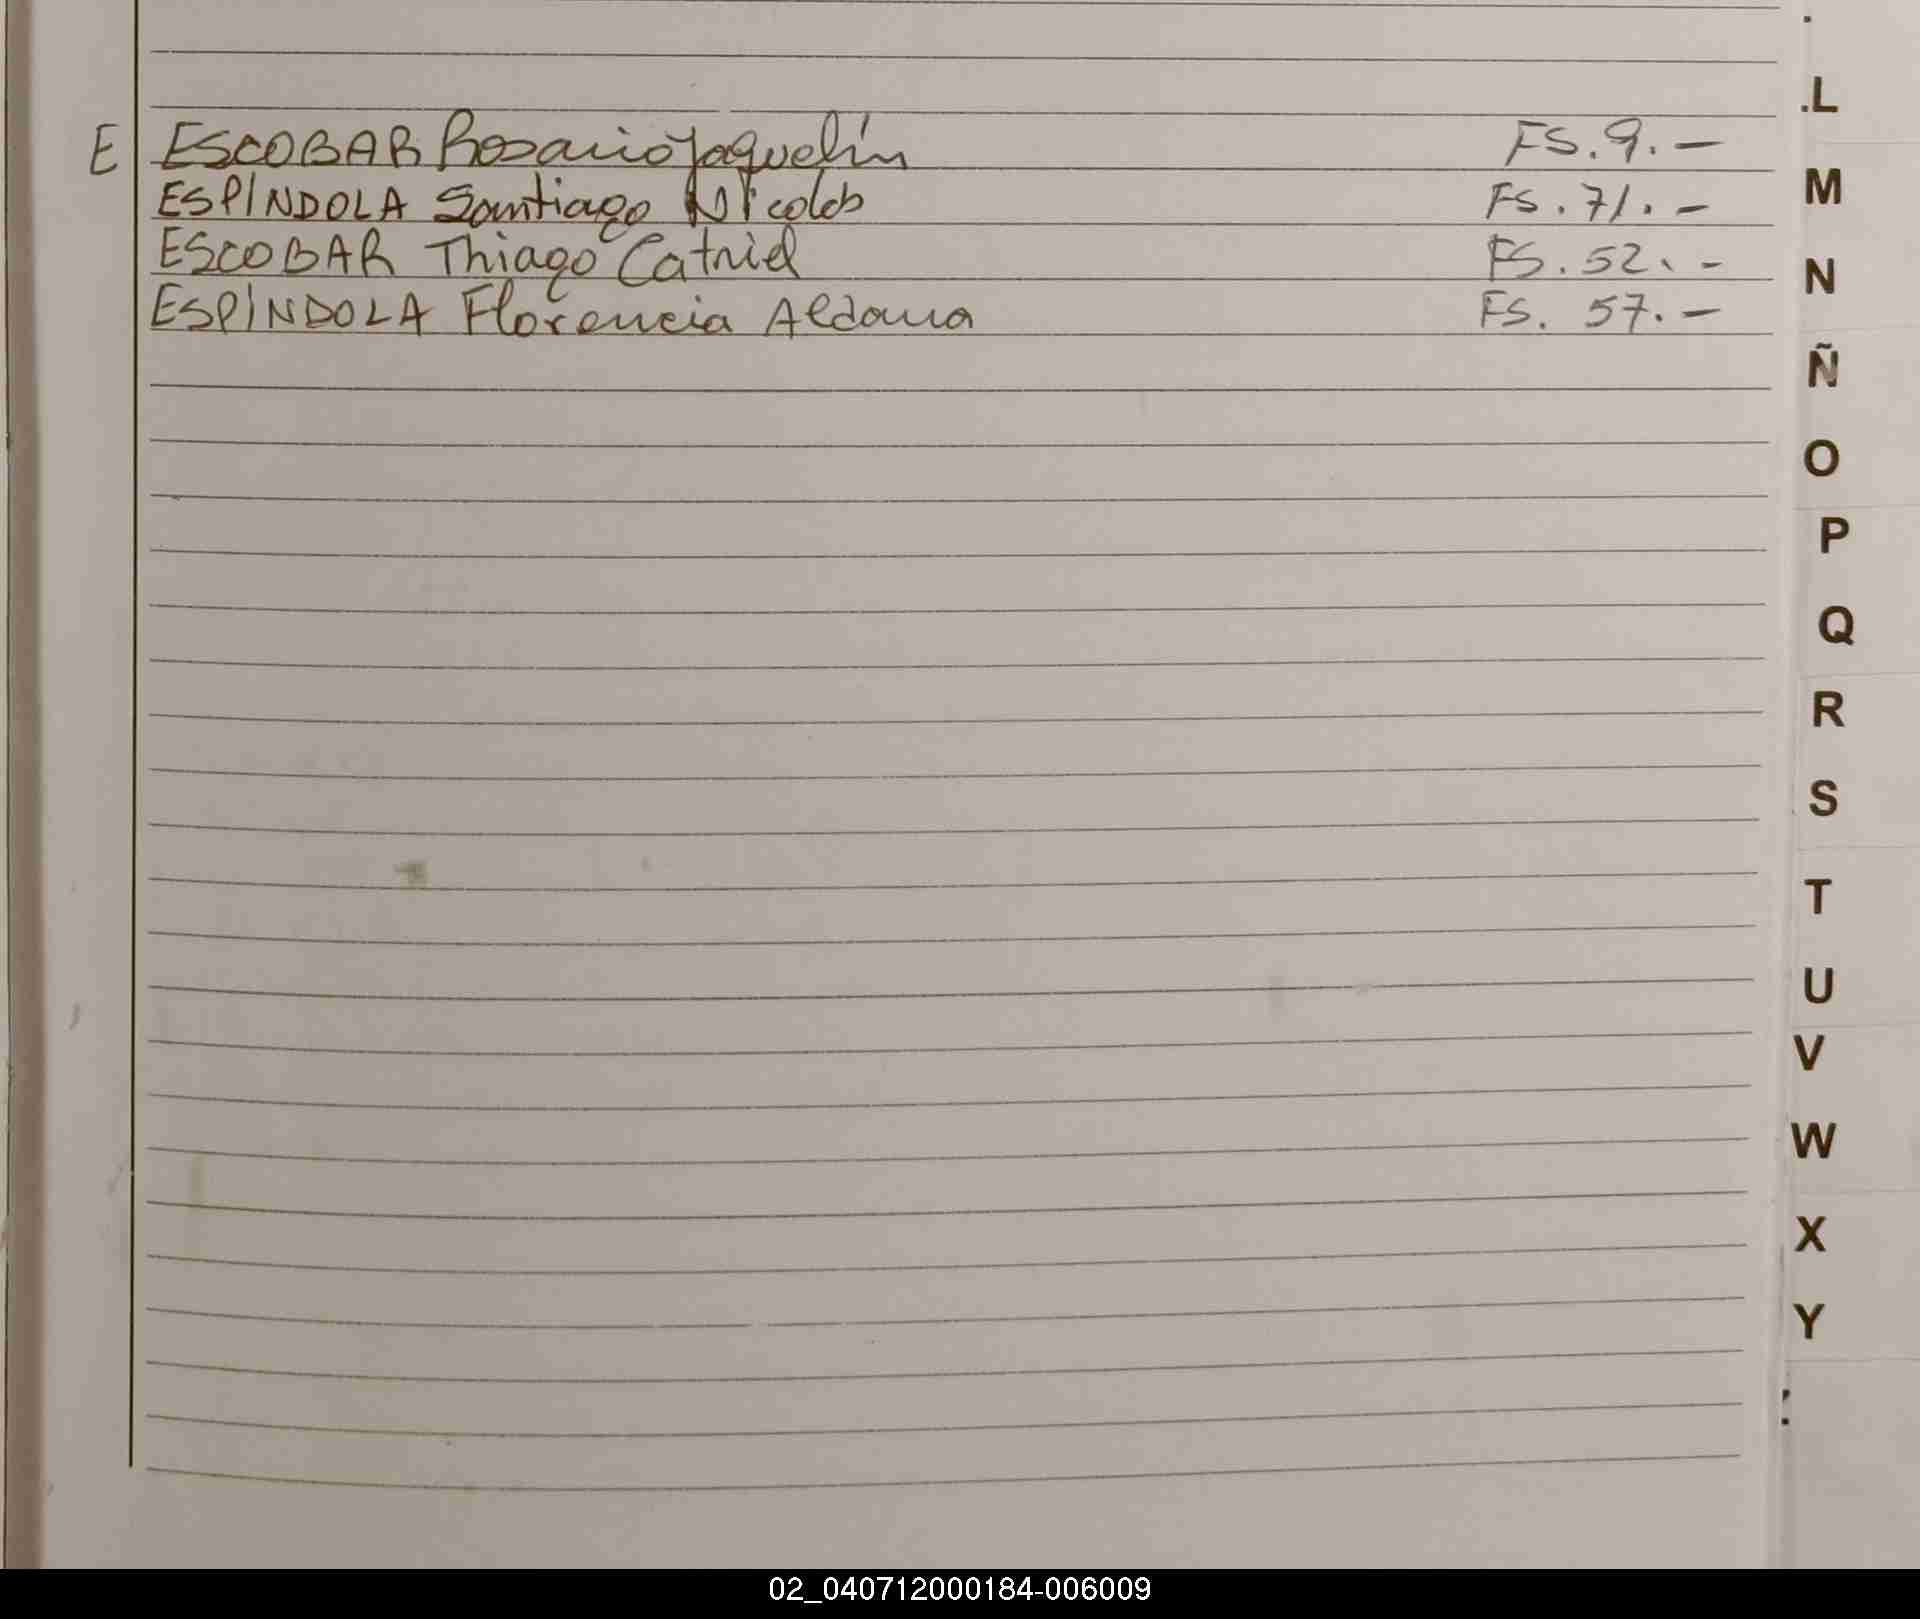 .L
E ESCOBAR Rosario Yaquelín FS. 9. —
M
ESPINDOLA Santiago Nicolás FS. 71. —
ESCOBAR Thiago Catriel FS. 52. -
N
ESPINDOLA Florencia Aldana FS. 57. —
Ñ
O
P
Q
R
S
T
U
V
W
X
Y
02_040712000184-006009